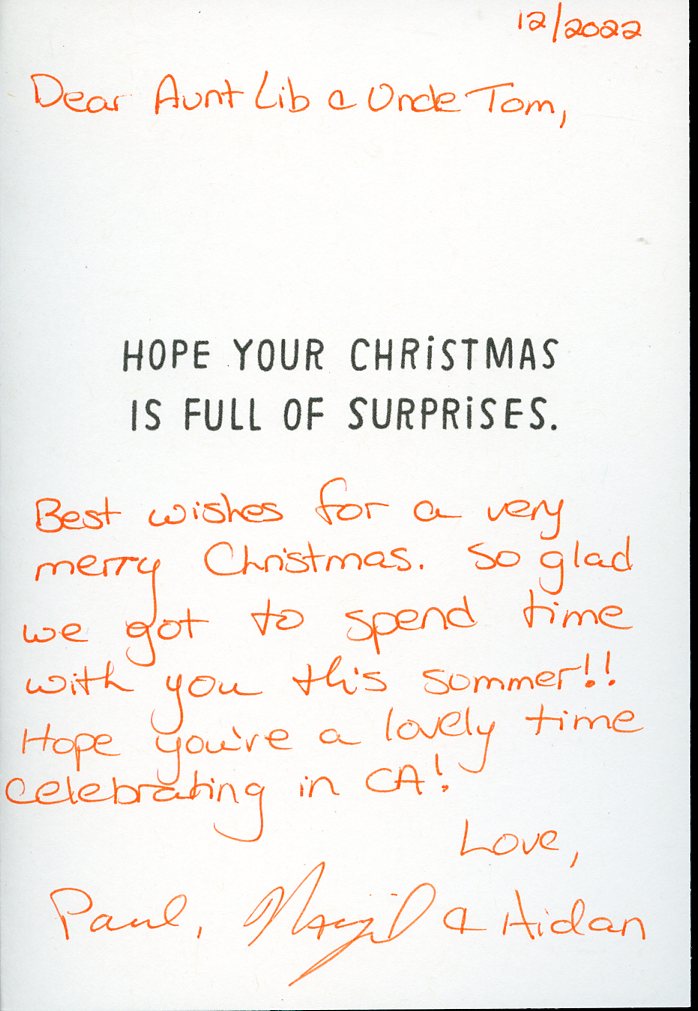 12/2022
Dear Aunt Lib & Uncle Tom,
HOPE YOUR CHRiSTMAS
IS FULL OF SURPRiSES.
Best wishes for a very
merry Christmas. So glad
we got to spend time
with you this summer!!
Hope you've a lovely time
celebrating in CA!
Love,
Paul, & Aidan